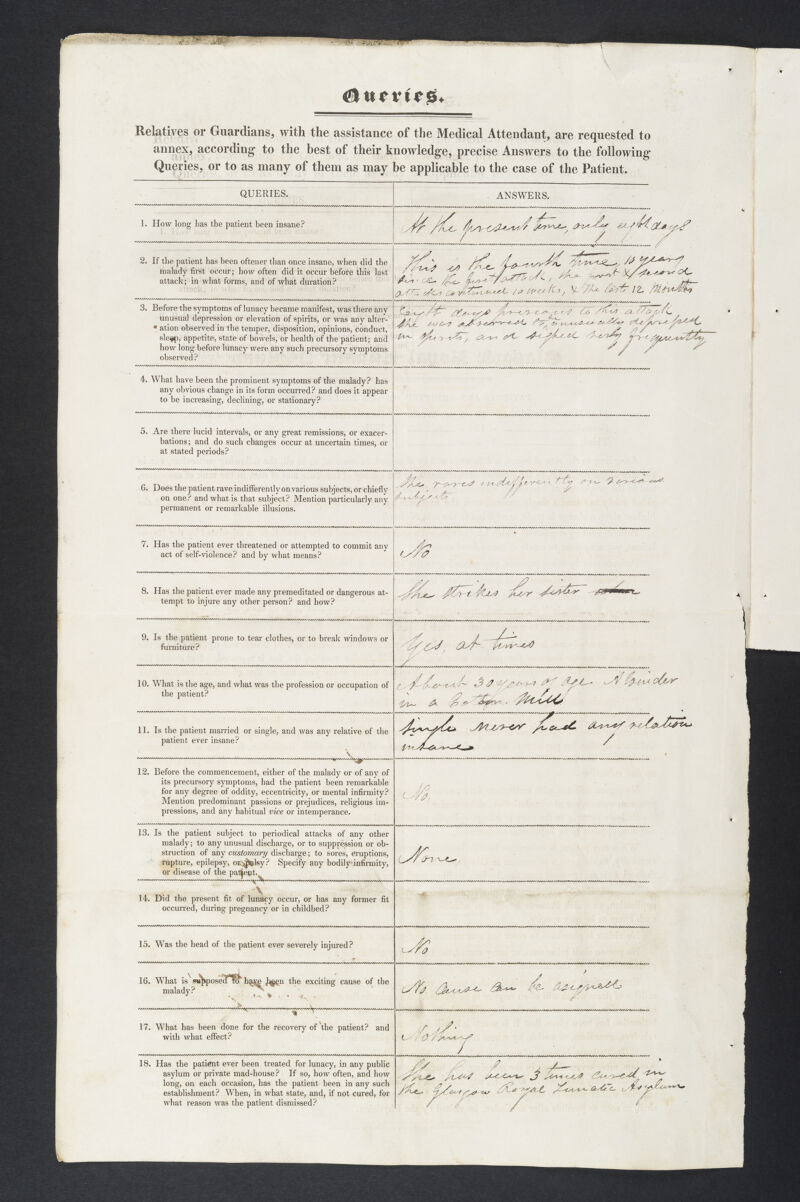 Queries.
Relatives or Guardians, with the assistance of the Medical Attendant, are requested to
annex, according to the best of their knowledge, precise Answers to the following
Queries, or to as many of them as may be applicable to the case of the Patient.
QUERIES.
ANSWERS.
1. How long has the patient been insane?
At the present time, only eight days
2. If the patient has been oftener than once insane, when did the
malady first occur; how often did it occur before this last
attack; in what forms, and of what duration?
This is the fourth time, 10 years
since the first attack, the first & second
attacks continued 10 weeks, & the last 12 Months
3. Before the symptoms of lunacy became manifest, was there any
unusual depression or elevation of spirits, or was any alter-
ation observed in the temper, disposition, opinions, conduct,
sleep, appetite, state of bowels, or health of the patient; and
how long before lunacy were any such precursory symptoms
observed?
Eight days previous to this attack
she was observed to, unusually depressed
in spirits, and sighed very frequently
4. What have been the prominent symptoms of the malady? has
any obvious change in its form occurred? and does it appear
to be increasing, declining, or stationary?
5. Are there lucid intervals, or any great remissions, or exacer-
bations; and do such changes occur at uncertain times, or
at stated periods?
6. Does the patient rave indifferently on various subjects, or chiefly
on one? and what is that subject? Mention particularly any
permanent or remarkable illusions.
She raves indifferently on various
subjects
7. Has the patient ever threatened or attempted to commit any
act of self-violence? and by what means?
No
8. Has the patient ever made any premeditated or dangerous at-
tempt to injure any other person? and how?
She strikes her sister
9. Is the patient prone to tear clothes, or to break windows or
furniture?
Yes, at times
10. What is the age, and what was the profession or occupation of
the patient?
About 30 years of age. A Winder
in a Cotton Mill
11. Is the patient married or single, and was any relative of the
patient ever insane?
Single Never had any relation
insane
12. Before the commencement, either of the malady or of any of
its precursory symptoms, had the patient been remarkable
for any degree of oddity, eccentricity, or mental infirmity?
Mention predominant passions or prejudices, religious im-
pressions, and any habitual vice or intemperance.
No.
13. Is the patient subject to periodical attacks of any other
malady; to any unusual discharge, or to suppression or ob-
struction of any customary discharge; to sores, eruptions,
rupture, epilepsy, or palsy? Specify any bodily infirmity,
or disease of the patient.
None
14. Did the present fit of lunacy occur, or has any former fit
occurred, during pregnancy or in childbed?
15. Was the head of the patient ever severely injured?
No
16. What is supposed to have been the exciting cause of the
malady?
No Cause can be asignell
17. What has been done for the recovery of the patient? and
with what effect?
Nothing
18. Has the patient ever been treated for lunacy, in any public
asylum or private mad-house? If so, how often, and how
long, on each occasion, has the patient been in any such
establishment? When, in what state, and, if not cured, for
what reason was the patient dismissed?
She has been 3 times cured, in
the Glasgow Royal Lunatic Asylum